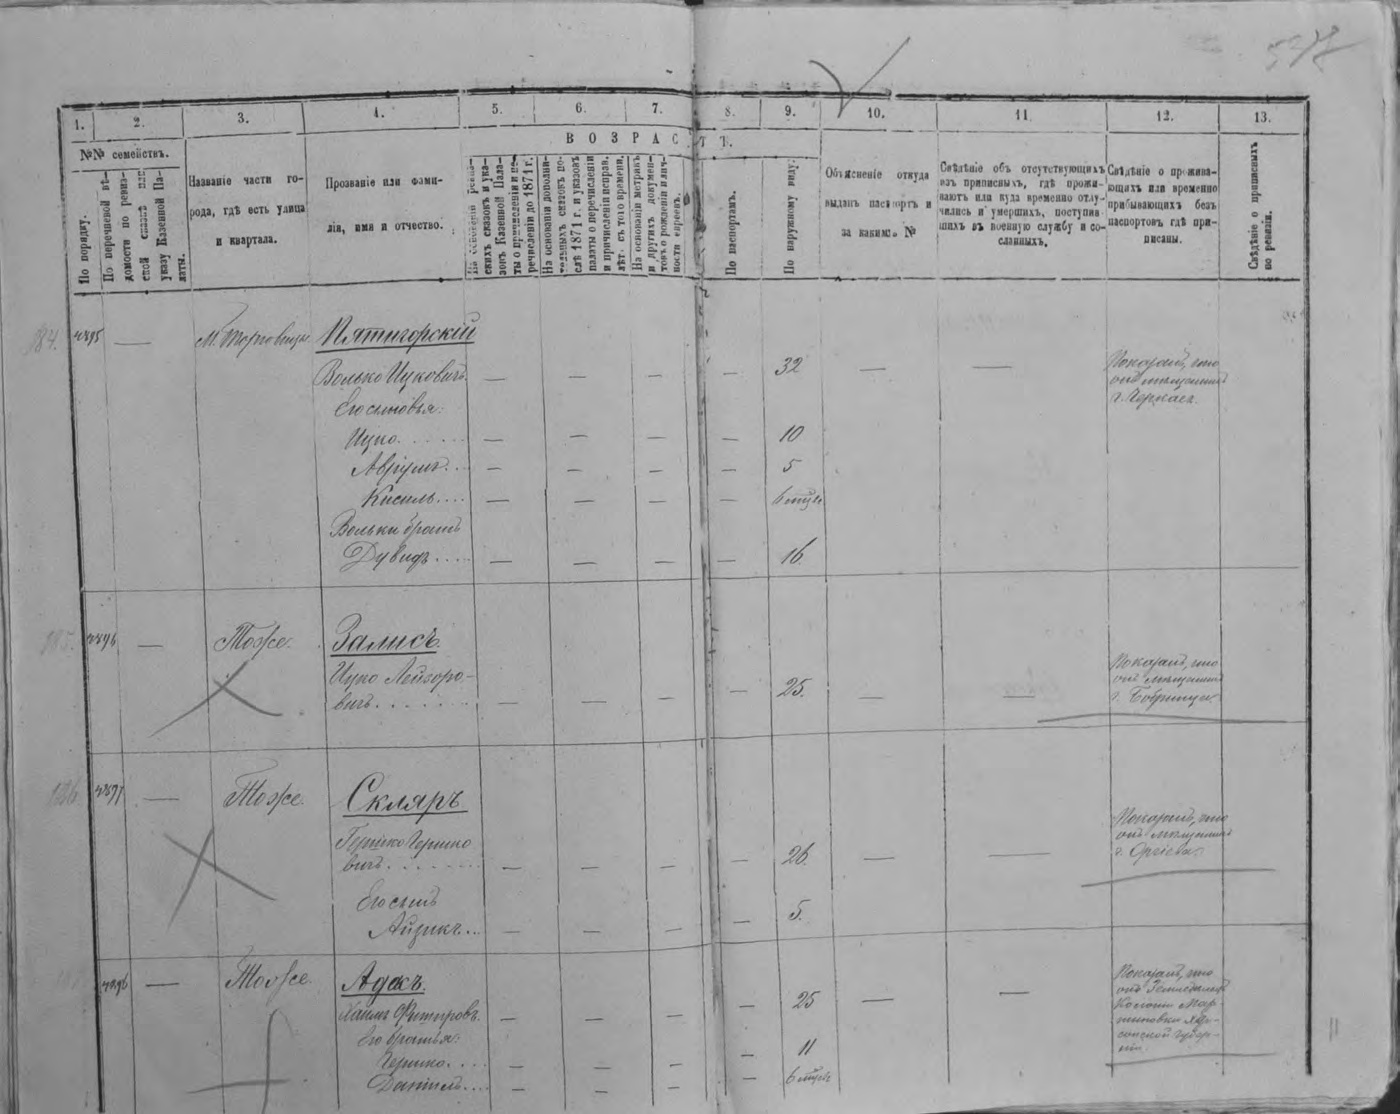 1.
2.
3.
4.
5.
6.
7.
8.
9.
10.
11.
12.
13.
ВОЗРАСТЪ.
№№ семействъ.
По порядку.
По перечневой вѣ-
домости по ревиз-
ской сказкѣ или
указу Казенной Па-
латы.
Названіе части го-
рода, гдѣ есть улица
и квартала.
Прозваніе или фами-
лія, имя и отчество.
ревиз-
скихъ сказокъ и ука-
зокъ Казенной Пала-
ты о причисленіи и пе-
речисленіи до 1871 г.
На основаніи дополни-
тельныхъ сказокъ по-
слѣ 1871 г. и указокъ
палаты о перечисленіи
и причисленіи исправ.
лѣт. съ того времени.
На основаніи метрикъ
и другихъ докумен-
товъ о рожденіи и лич-
ности евреевъ.
По паспортамъ.
По наружному виду.
Объясненіе откуда
выданъ паспортъ и
за какимъ №
Свѣдѣніе объ отсутствующихъ
изъ приписныхъ, гдѣ прожи-
ваютъ или куда временно отлу-
чились и умершихъ, поступив-
шихъ въ военную службу и со-
сланныхъ.
Свѣдѣніе о прожива-
ющихъ или временно
прибывающихъ безъ
паспортовъ гдѣ при-
писаны.
Свѣдѣніе о приписныхъ
по ревизіи.
184. 4895 — М. Торговица Пятигорскій
Волько Ицковичъ — — — — 32 — — Показалъ, что
онъ мѣщанинъ
г. Черкасъ.
Его сыновья:
Ицко — — — — 10
Аврумъ — — — — 5
Кисиль — — — — 6 мѣся
Вольки братъ
Дувидъ — — — — 16
185. 4896 — Тоже. Залисъ.
Ицко Лейзоро-
вичъ — — — — 25. — — Показалъ, что
онъ мѣщанинъ
г. Бобринца
186. 4897 — Тоже. Скляръ
Гершко Гершко
вичъ — — — — 26. — — Показалъ, что
онъ мѣщанинъ
г. Оргіева
Его сынъ
Айзикъ — — — — 5.
4898 — Тоже. Адакъ.
Хаимъ — — — — 25 — — Показалъ, что
онъ
Колоніи Мар-
тиновки Хер-
сонской губер-
ніи.
Его братья:
Гершко — — — — 11
Даніилъ — — — 6 мѣся